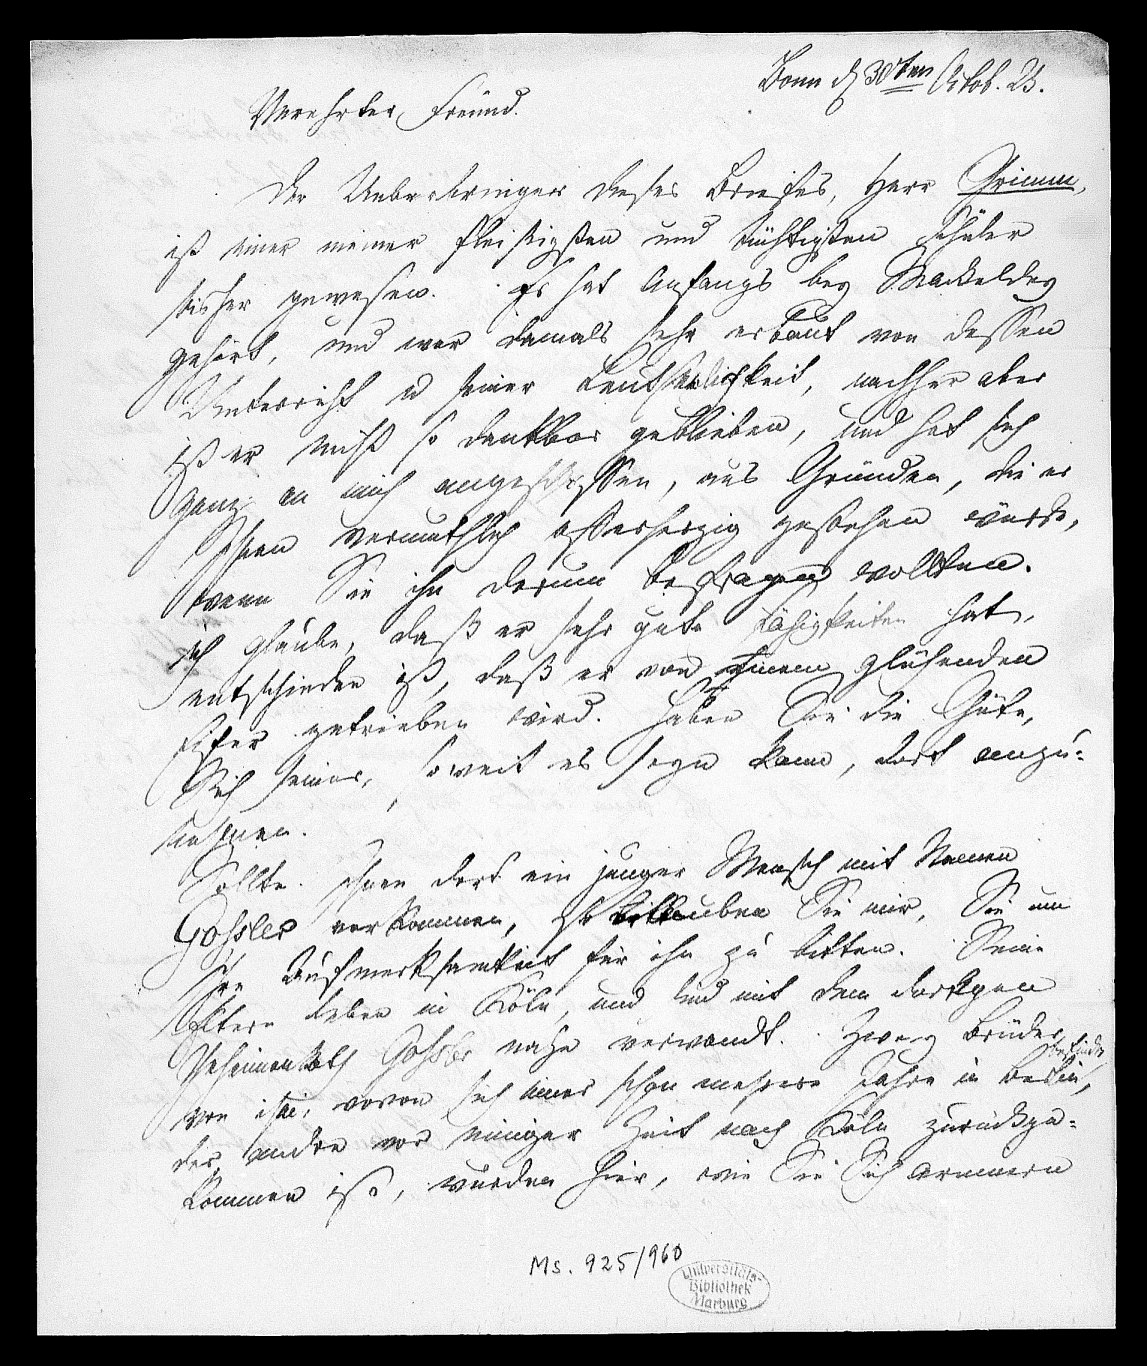 Bonn d. 30ten Octob. 25.
Verehrter Freund.
Der Ueberbringer dieses Briefes, Herr Grimm,
ist einer meiner fleißigsten und tüchtigsten Schüler
bisher gewesen. Er hat Anfangs bey Mackeldey
gehört, und war damals sehr erbaut von dessen
Unterricht u seiner Leutseligkeit, nachher aber
ist er nicht so dankbar geblieben, und hat sich
ganz an mich angeschlossen, aus Gründen, die er
Ihnen vermuthlich offenherzig gestehen würde,
wenn Sie ihn darum befragen wollten.
ich glaube, daß er sehr gute Fähigkeiten hat,
entschieden ist, daß er von einem glühenden
Eifer getrieben wird. Haben Sie die Güte,
Sich seiner, soweit es seyn kann, dort anzu-
nehmen.
Sollte Ihnen dort ein junger Mensch mit Namen
Gossler vorkommen, so erlauben Sie mir, Sie um
Ihre Aufmerksamkeit für ihn zu bitten. Seine
Eltern leben in Köln, und sind mit dem dortigen
Geheimen Rath Gossler nahe verwandt. Zwey Brüder
von ihm, wovon sich einer schon mehrere Jahre in Berlin befindet,
der andre vor einiger Zeit nach Köln zurückge-
kommen ist, wurden hier, wie Sie Sich erinnern
Ms. 925/960
Universitäts-
Bibliothek
Marburg